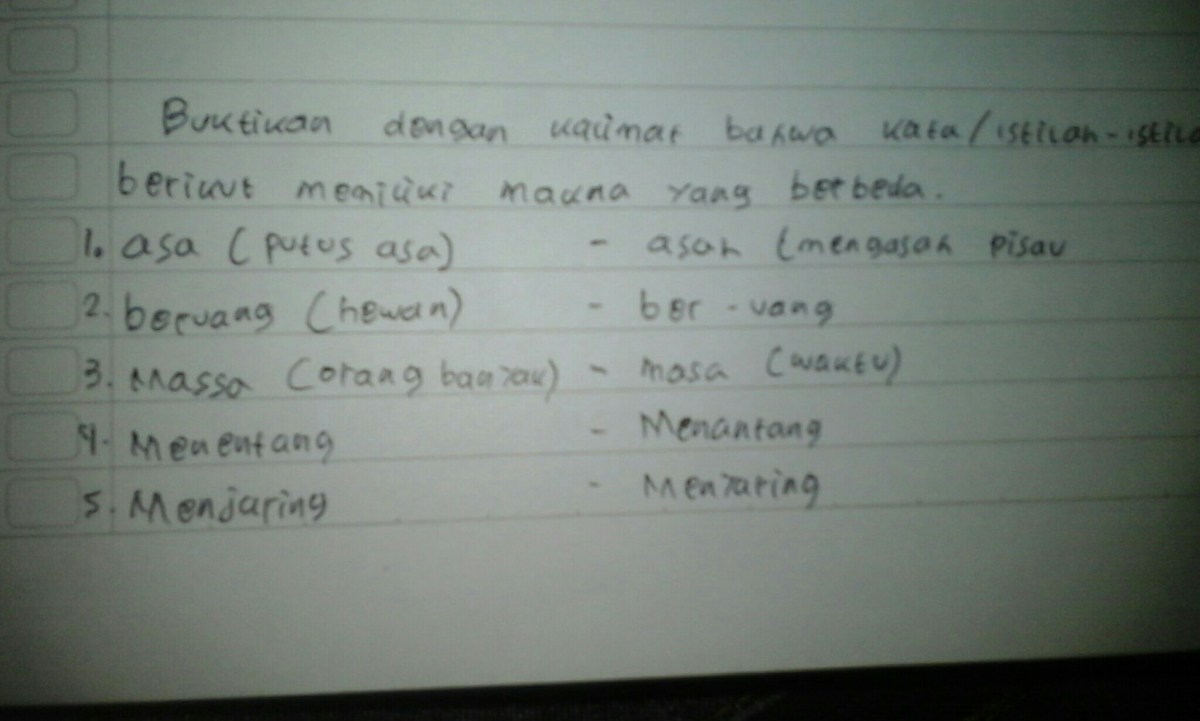 Buktikan dengan kalimat bahwa kata/istilah-istila
berikut memiliki makna yang berbeda.
1. asa (putus asa) - asah (mengasah pisau
2. beruang (hewan) - ber-uang
3. Massa (orang banyak) - masa (waktu)
4. Menentang - Menantang
5. Menjaring - Menyaring